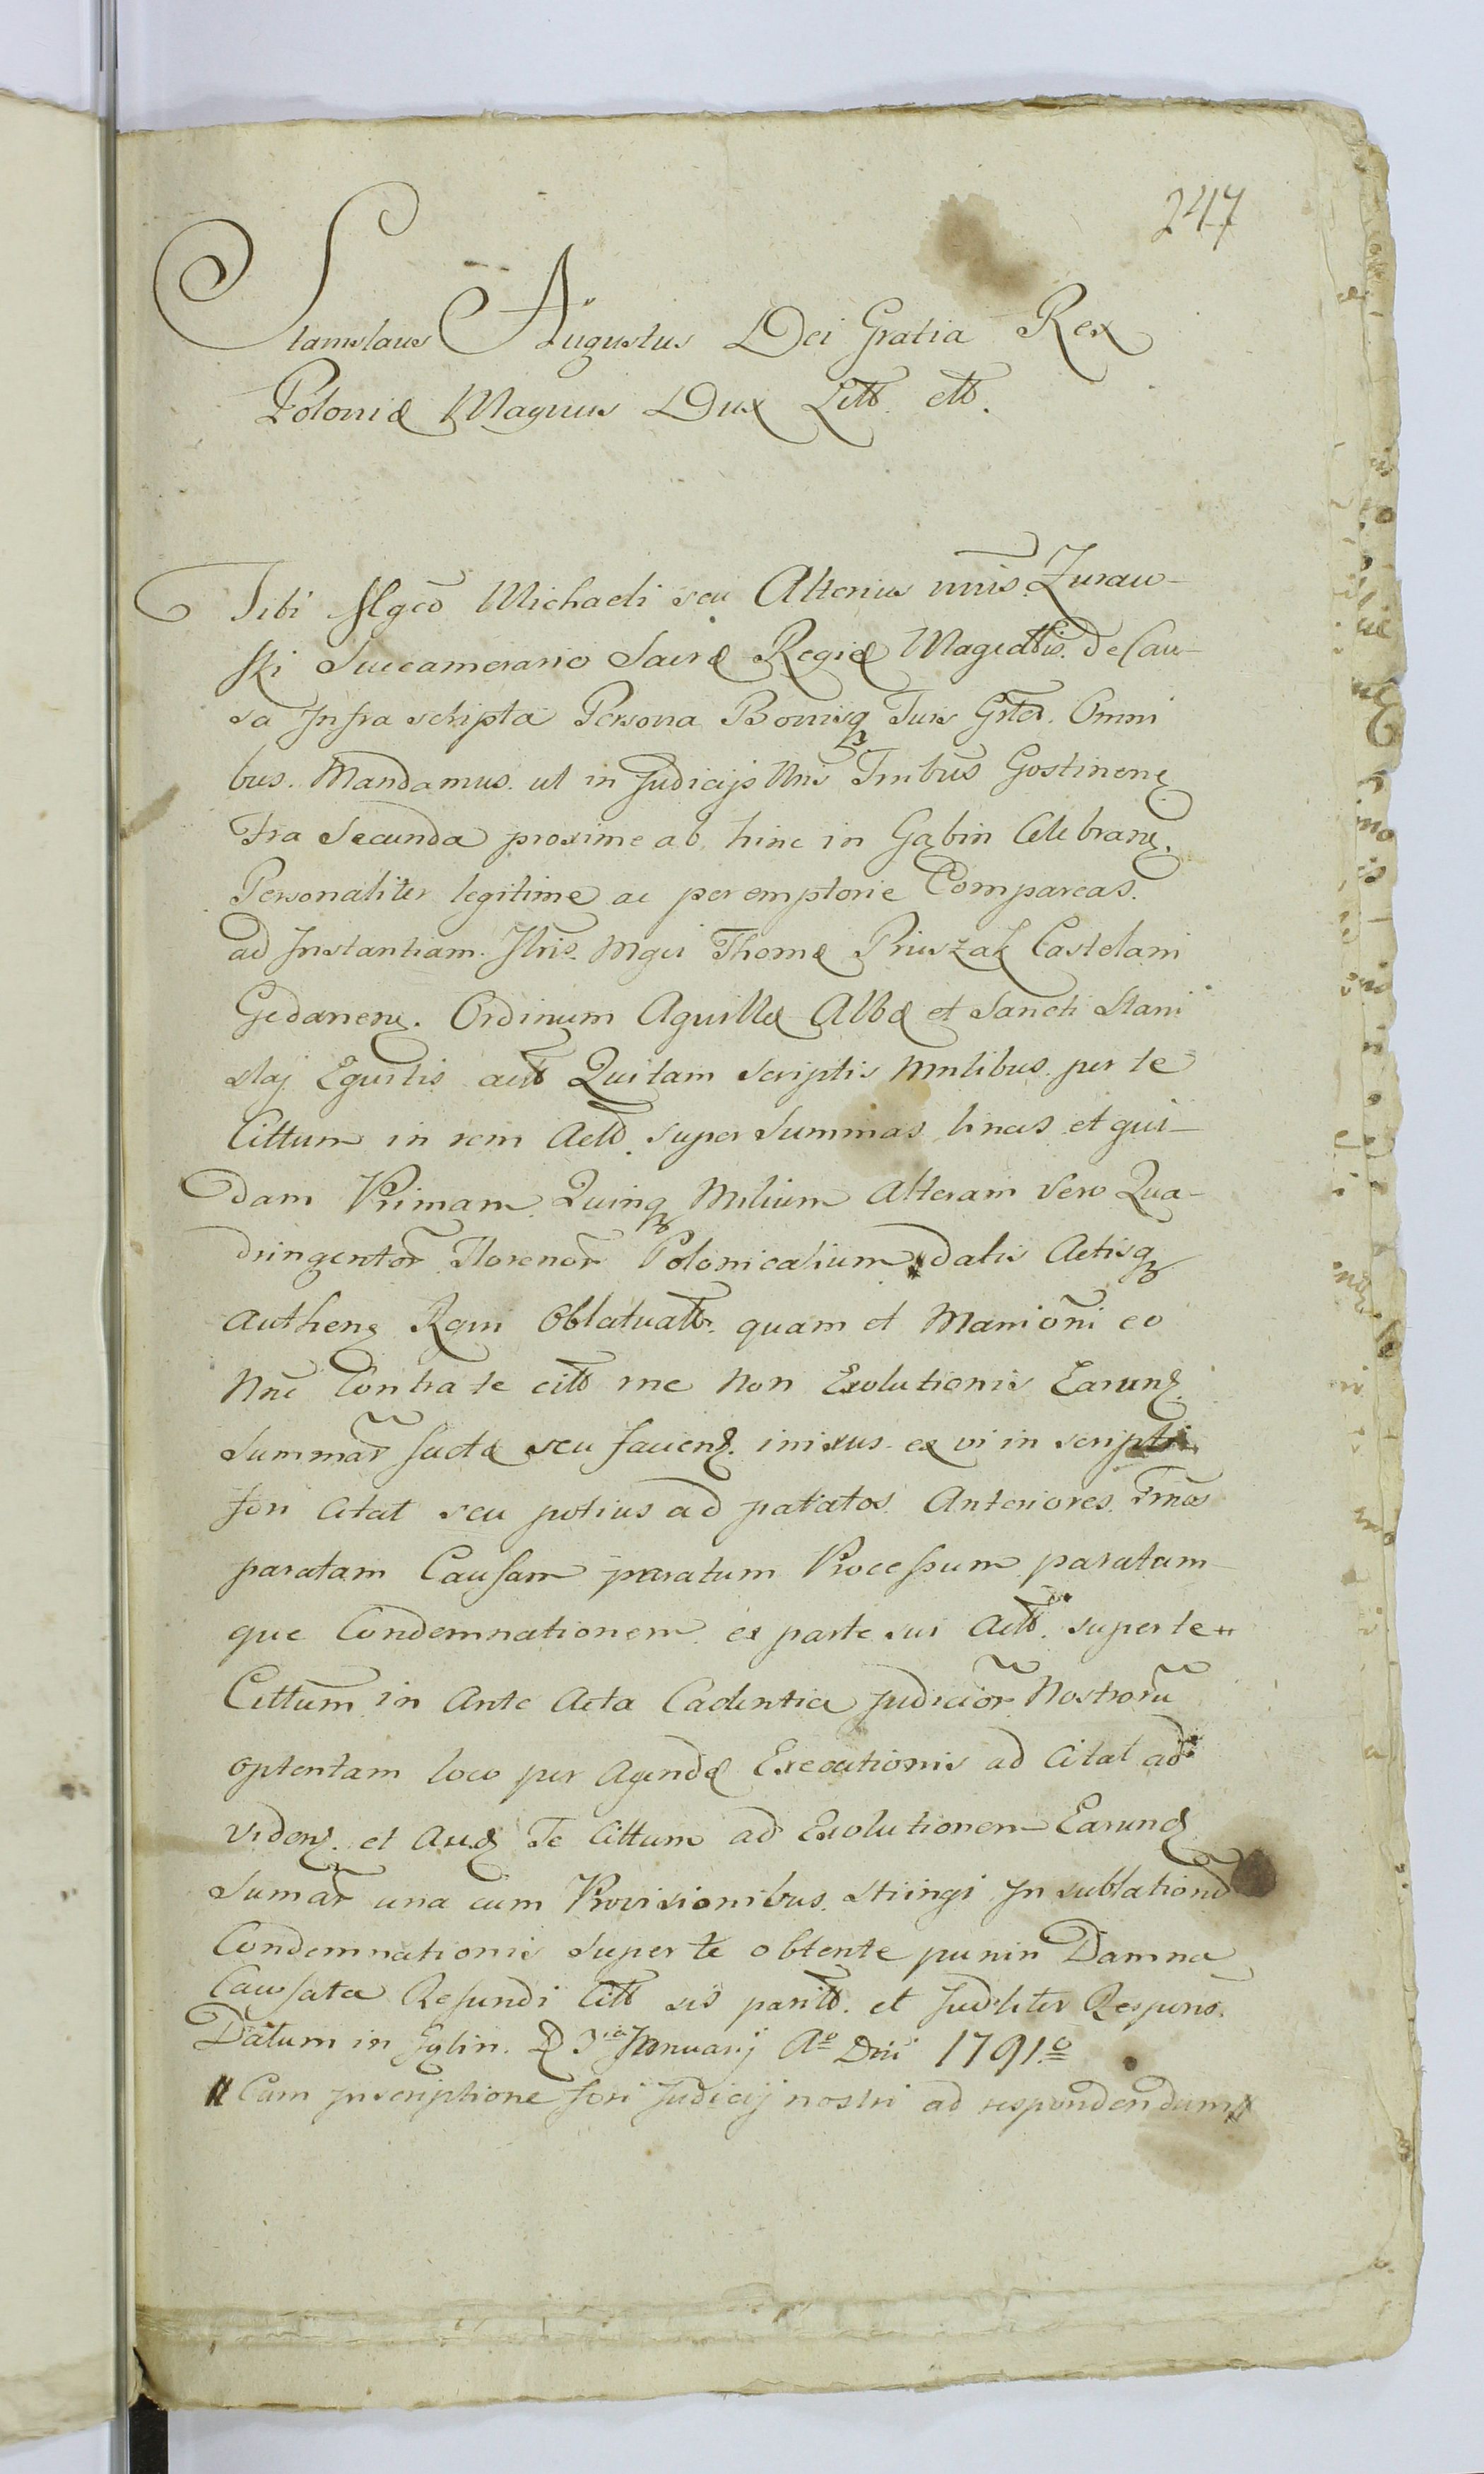 247
Stanislaus Augustus Dei Gratia Rex
Poloniæ Magnus Dux Litt. ett.
Tibi Mgco Michaeli seu Alterius nnis Zuraw-
ski Succamerario Sacræ Regiæ Magiettis. de Cau-
sa Infra scripta Persona Bonisq Tuis Grter. Omni
bus. Mandamus. ut in Judicijs Nris Trribus Gostinens
Fra Secunda proxime ab hinc in Gąbin Celebrans.
Personaliter legitime ac peremptorie Compareas.
ad Instantiam. Illris. Mgci Thomæ Pruszak Castelani
Gedanens. Ordinum Aquillæ Albæ et Sancti Stani
slaj Equitis actt Qui tam scriptis mnlibus. per te
Cittum in rem Actt. super Summas binas et qui-
dam Primam Quinq Milium Alteram vero Qua-
dringentor Florenor Polonicalium datis Actisq
authens Rgni Oblatuatt. quam et Manioni eo
Nne Contra te citt me Non Exolutionis Earund.
Summar factæ seu faciend. inixus ex vi in scripti
fori Citat seu potius ad paratos Anteriores Trnos
paratam Causam paratum Processum paratam
que Condemnationem ex parte sui Actt. super te #
Cittum in Ante Acta Cadentia Judicior Nostroru
optentam loco per Agendæ Executionis ad Citat ad
videns. et Aud Te Cittum ad Exolutionem Earund
Sumar una cum Provisionibus. stringi In sublatione
Condemnationis super te obtente punin Damna
Causata Refundi Citt sis paritt. et Judliter Respuns.
Datum in Gąbin. D 3ia Januarij Ao Dni 1791o
# Cum Inscriptione fori Judicij nostri ad respondendum #